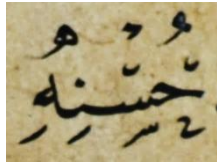 حُسْنِهِ